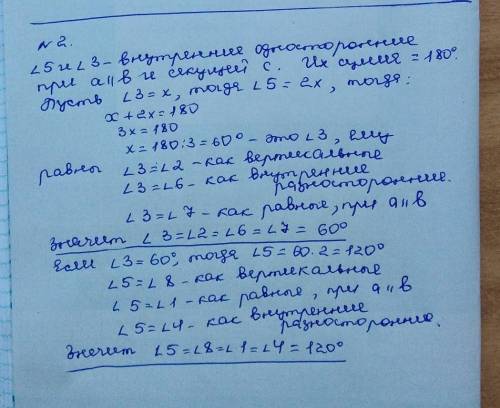 №2.
∠5 и ∠3 - внутренние односторонние
при a॥b и секущей c. Их сумма = 180°.
Пусть ∠3 = x, тогда ∠5 = 2x, тогда:
x + 2x = 180
3x = 180
x = 180:3 = 60° - это ∠3, ему
равны ∠3 = ∠2 - как вертикальные
∠3 = ∠6 - как внутренние
разносторонние.
∠3 = ∠7 - как равные, при a॥b
Значит ∠3 = ∠2 = ∠6 = ∠7 = 60°
Если ∠3 = 60°, тогда ∠5 = 60·2 = 120°
∠5 = ∠8 - как вертикальные
∠5 = ∠1 - как равные, при a॥b
∠5 = ∠4 - как внутренние
разносторонние.
Значит ∠5 = ∠8 = ∠1 = ∠4 = 120°